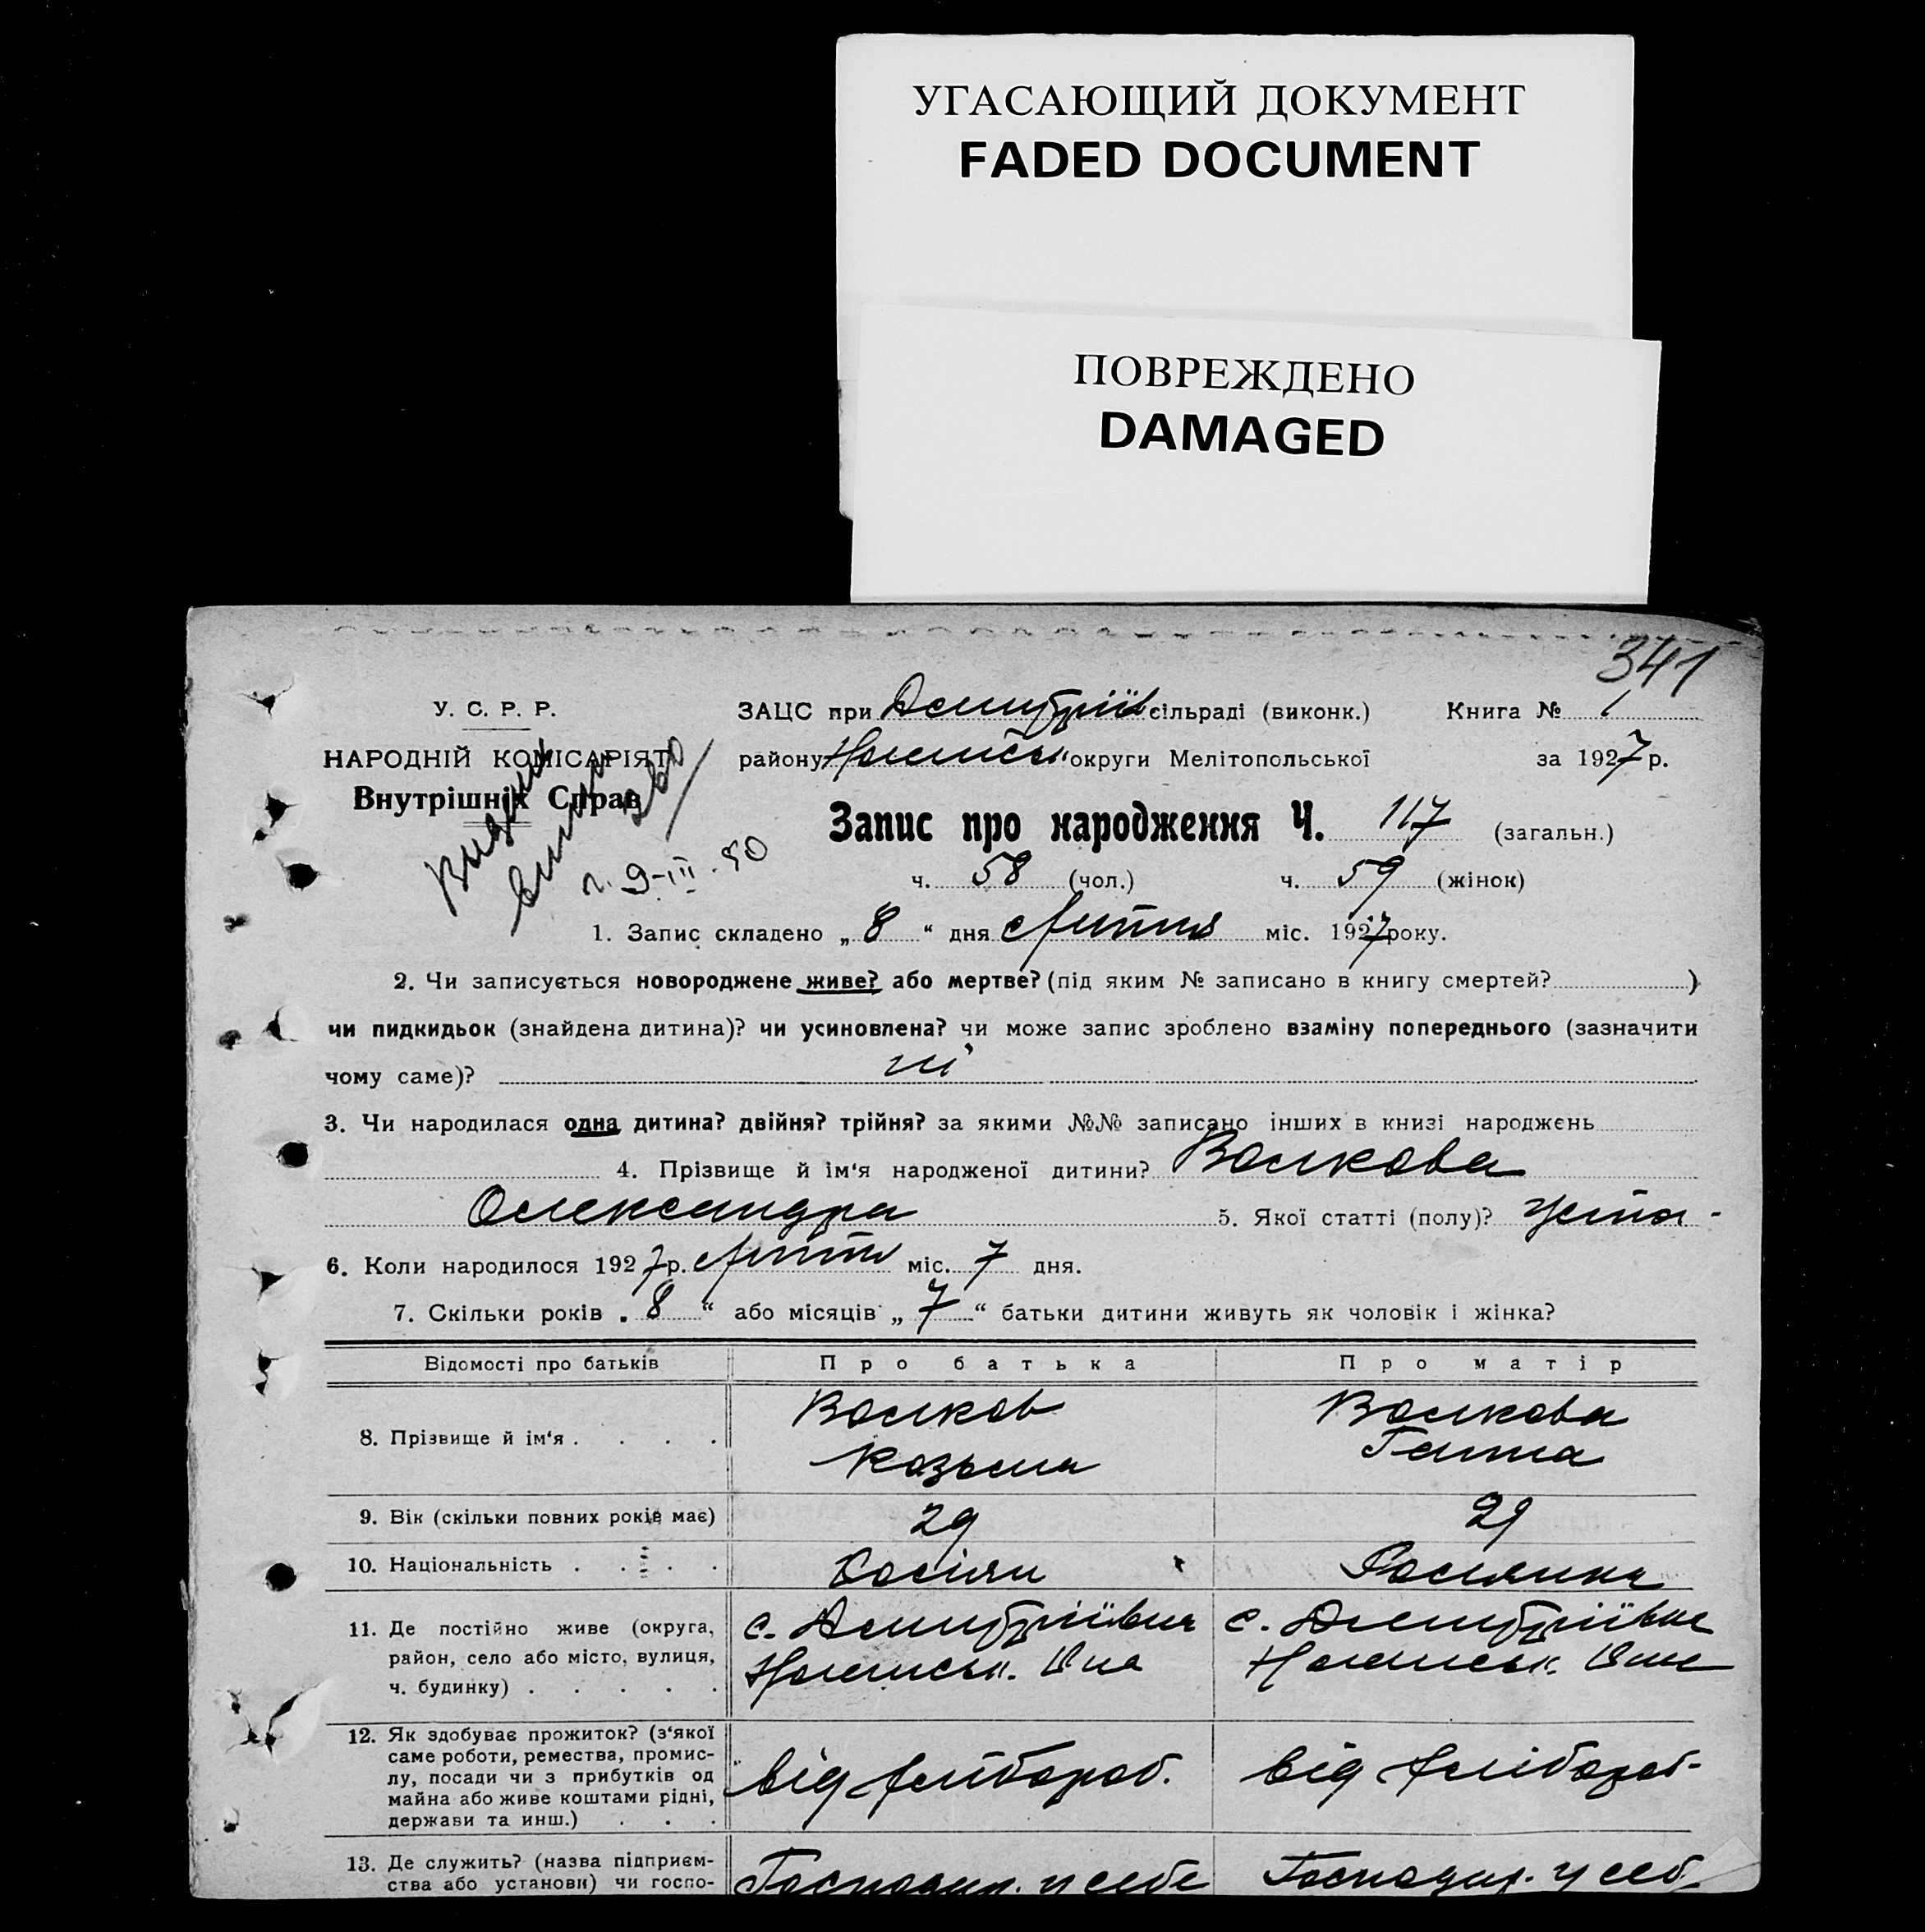 УГАСАЮЩИЙ ДОКУМЕНТ
FADED DOCUMENT
ПОВРЕЖДЕНО
DAMAGED
341
У. С. Р. Р.
НАРОДНІЙ КОМІСАРІЯТ
Внутрішніх Справ
г. 9-III-50
ЗАЦС при Дмитріїв сільраді (виконк.) Книга № 1
району округи Мелітопольської за 1927 р.
Запис про народження Ч. 117 (загальн.)
ч. 58 (чол.) ч. 59 (жінок)
1. Запис складено „ 8 “ дня Липня міс. 1927 року.
2. Чи записується новороджене живе? або мертве? (під яким № записано в книгу смертей? )
чи пидкидьок (знайдена дитина)? чи усиновлена? чи може запис зроблено взаміну попереднього (зазначити
чому саме)? ні
3. Чи народилася одна дитина? двійня? трійня? за якими №№ записано інших в книзі народжень
4. Прізвище й ім‘я народженої дитини? Волкова
Олександра 5. Якої статті (полу)?
6. Коли народилося 1927 р. Липня міс. 7 дня.
7. Скільки років „ 8 “ або місяців „ 7 “ батьки дитини живуть як чоловік і жінка?
Відомості про батьків Про батька Про матір
8. Прізвище й ім‘я . . . . Волков Волкова
Козьма Ганна
9. Вік (скільки повних років має) 29 29
10. Національність . . . . Росіян Росіянка
11. Де постійно живе (округа, с. Дмитріївка с. Дмитріївка
район, село або місто, вулиця,
ч. будинку) . . . . .
12. Як здобуває прожиток? (з‘якої
саме роботи, ремества, промис-
лу, посади чи з прибутків од від хлібороб. від хлібороб.
майна або живе коштами рідні,
держави та инш.) . . .
13. Де служить? (назва підприєм- Господар. у себе Господар. у себ
ства або установи) чи госпо-